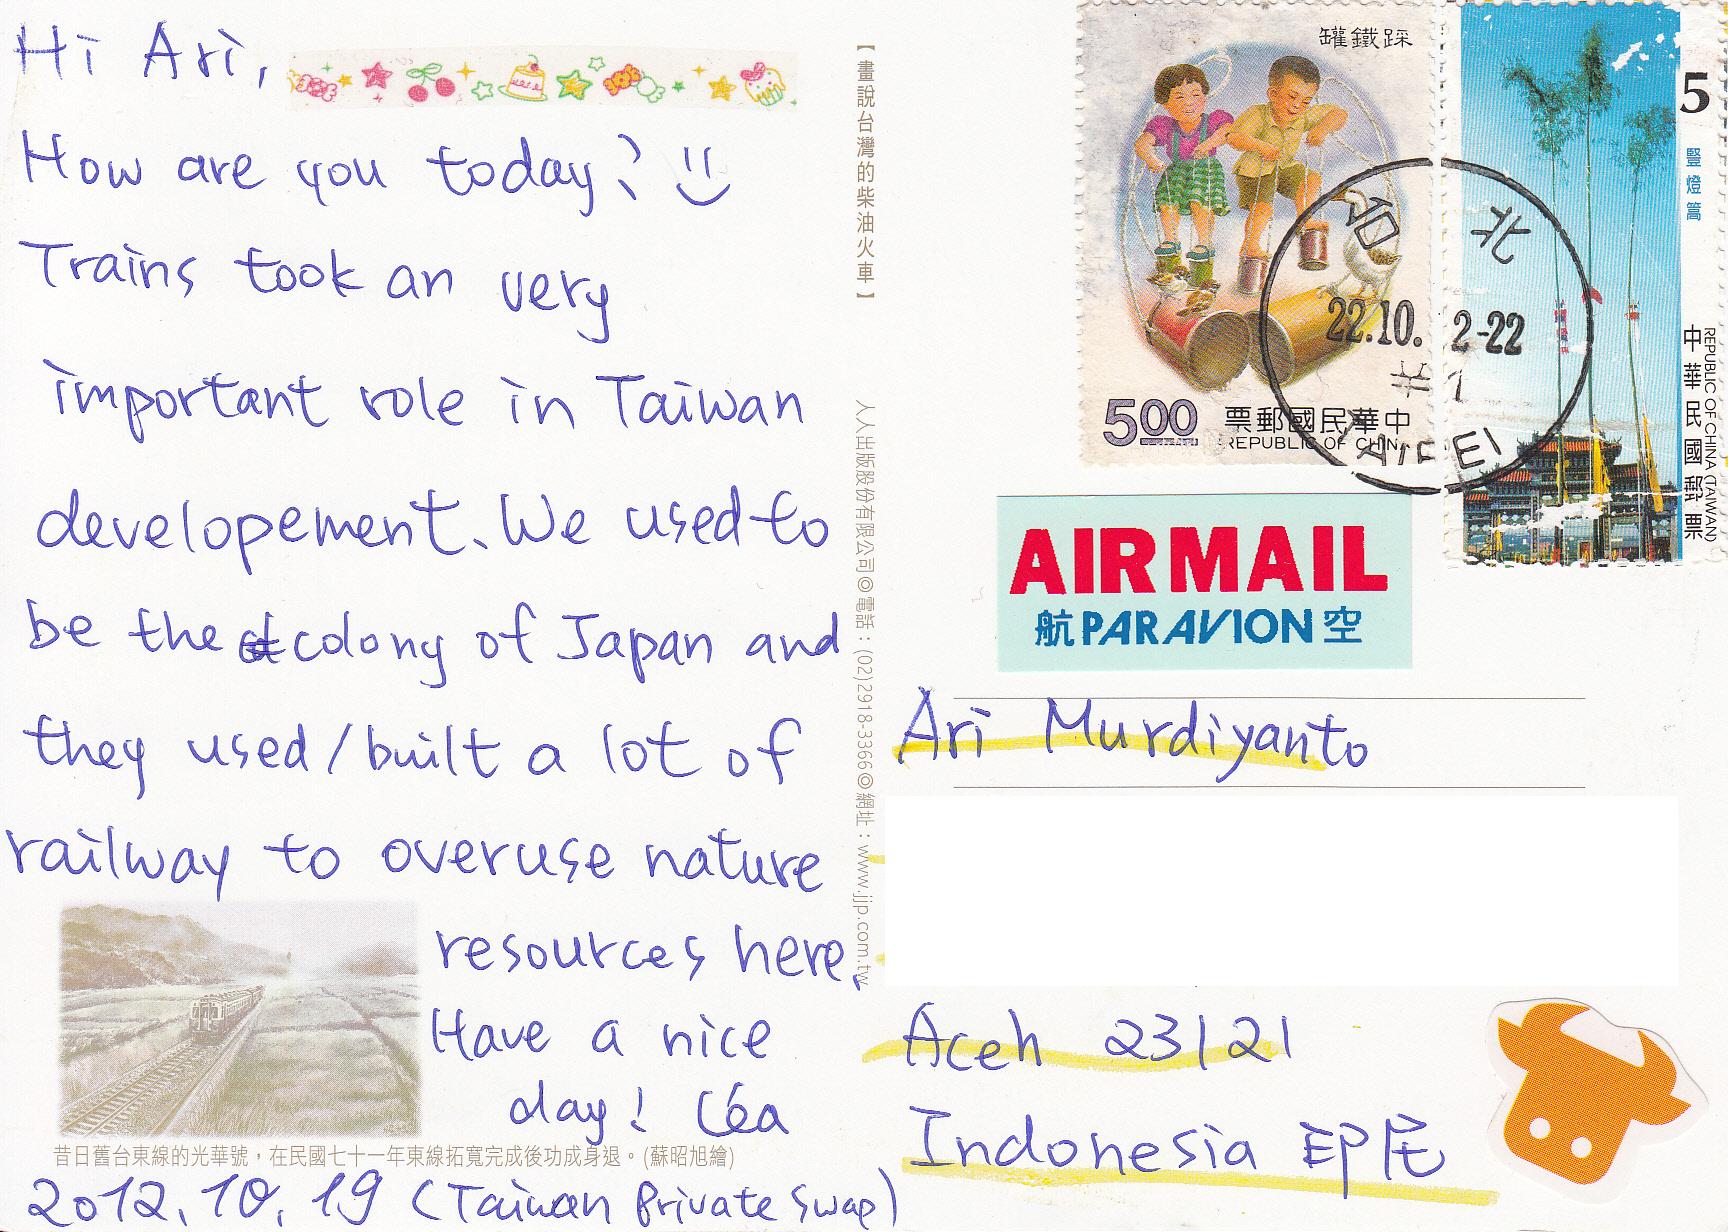 Hi Ari,
How are you today? :)
Trains took an very
important role in Taiwan
developement. We used to
be the colony of Japan and
they used/built a lot of
railway to overuse nature
resources here.
Have a nice
day! Céa
昔日舊台東線的光華號，在民國七十一年東線拓寬完成後功成身退。(蘇昭旭繪)
2012.10.19 (Taiwan Private Swap)
【畫說台灣的柴油火車】
人人出版股份有限公司◎電話：(02)2918-3366◎網址：www.jjp.com.tw
罐鐵踩
5.00
票郵國民華中
REPUBLIC OF CHINA
5
豎燈篙
中華民國郵票
REPUBLIC OF CHINA (TAIWAN)
台北
22.10.
2-22
TAIPEI
AIR MAIL
航 PAR AVION 空
Ari Murdiyanto
Aceh 23121
Indonesia 印尼